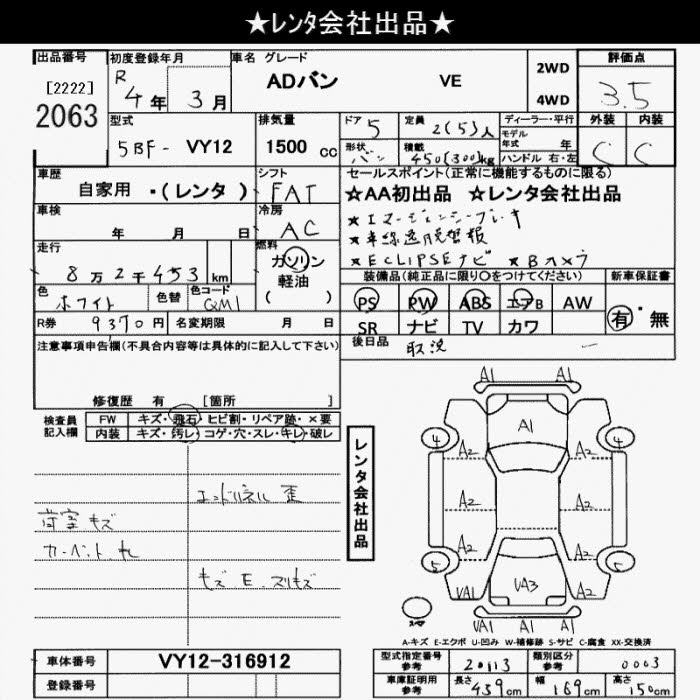 ★レンタ会社出品★
出品番号 初度登録年月 車名 グレード 評価点
[2222]
2063
R 4年 3月 ADバン VE 2WD 4WD 3.5
型式 5BF- VY12
排気量 1500 cc
ドア 5 定員 2(5)人
形状 バン 積載 450(300)kg
ディーラー・平行
モデル年式 年
ハンドル 右・左
外装 C 内装 C
車歴 自家用 ・(レンタ )
シフト FAT
セールスポイント(正常に機能するものに限る)
★AA初出品 ★レンタ会社出品
★エマージェンシーブレーキ
★車線逸脱警報
★ECLIPSEナビ ★Bカメラ
車検 年 月 日
冷房 AC
走行 8万2千453 km
燃料 ガソリン
軽油
( )
色 ホワイト 色替 色コード QM1
装備品(純正品に限り○をつけてください) 新車保証書
PS PW ABS エアB AW
SR ナビ TV カワ
有・無
R券 9370円 名変期限 月 日
後日品 取説 ー
注意事項申告欄(不具合内容等は具体的に記入して下さい)
修復歴 有 [箇所
検査員
記入欄
FW キズ・飛石・ヒビ割・リペア跡・×要
内装 キズ・汚レ・コゲ・穴・スレ・キレ・破レ
エンドパネル 歪
荷室 キズ
カーペット
レンタ会社出品
A1 A1
A1
4 4
A2 A2
A2 A2
A2 A2
5 5
VA1 VA3 A2
VA1 A1 A1
A-キズ E-エクボ U-凹み W-補修跡 S-サビ C-腐食 XX-交換済
車体番号 VY12-316912
登録番号
型式指定番号
参考
20113
類別区分
参考
0003
車庫証明用
参考
長さ 439cm 幅 169cm 高さ 150cm